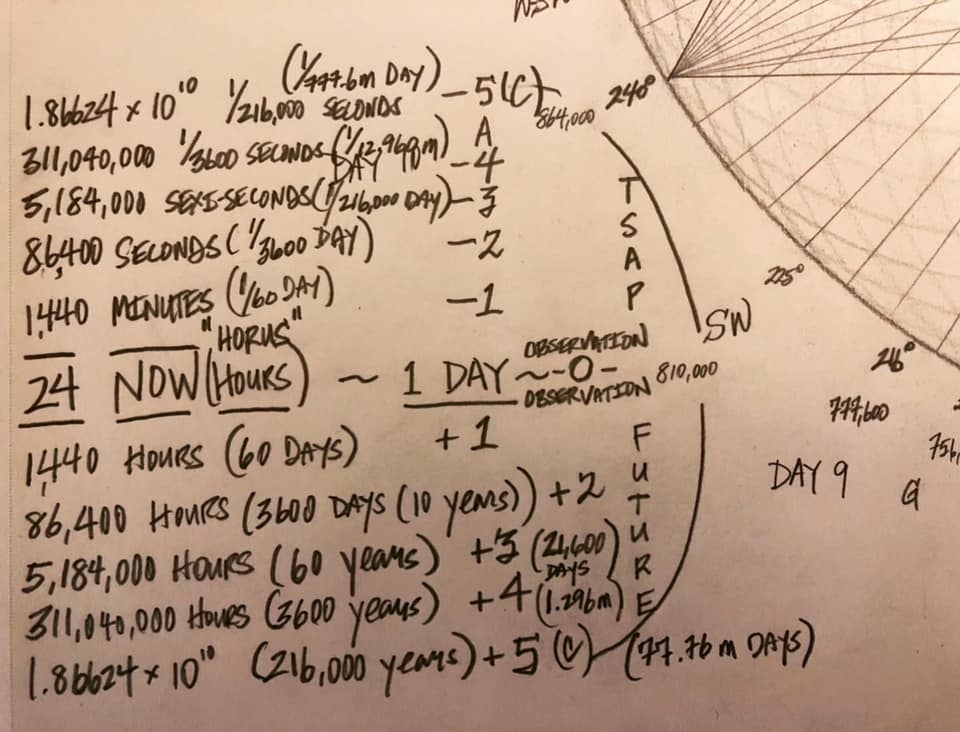 (1/777.6m DAY)
1.86624 × 10¹⁰ 1/216,000 SECONDS – 5 (C)
311,040,000 1/3600 SECONDS (1/12.96m) DAY – 4
A
5,184,000 SEXI-SECONDS (1/216,000 DAY) – 3
86,400 SECONDS (1/3600 DAY) – 2
1,440 MINUTES (1/60 DAY) – 1
"HORUS"
24 NOW (HOURS) ~ 1 DAY ~ - 0 -
OBSERVATION
OBSERVATION
1,440 HOURS (60 DAYS) + 1
86,400 HOURS (3600 DAYS (10 years)) + 2
5,184,000 HOURS (60 years) + 3 (21,600 DAYS)
311,040,000 HOURS (3600 years) + 4 (1.296m)
1.86624 × 10¹⁰ (216,000 years) + 5 (C) (77.76m DAYS)
T
S
A
P
F
U
T
U
R
E
864,000
240°
225°
SW
810,000
216°
777,600
756,
DAY 9
G